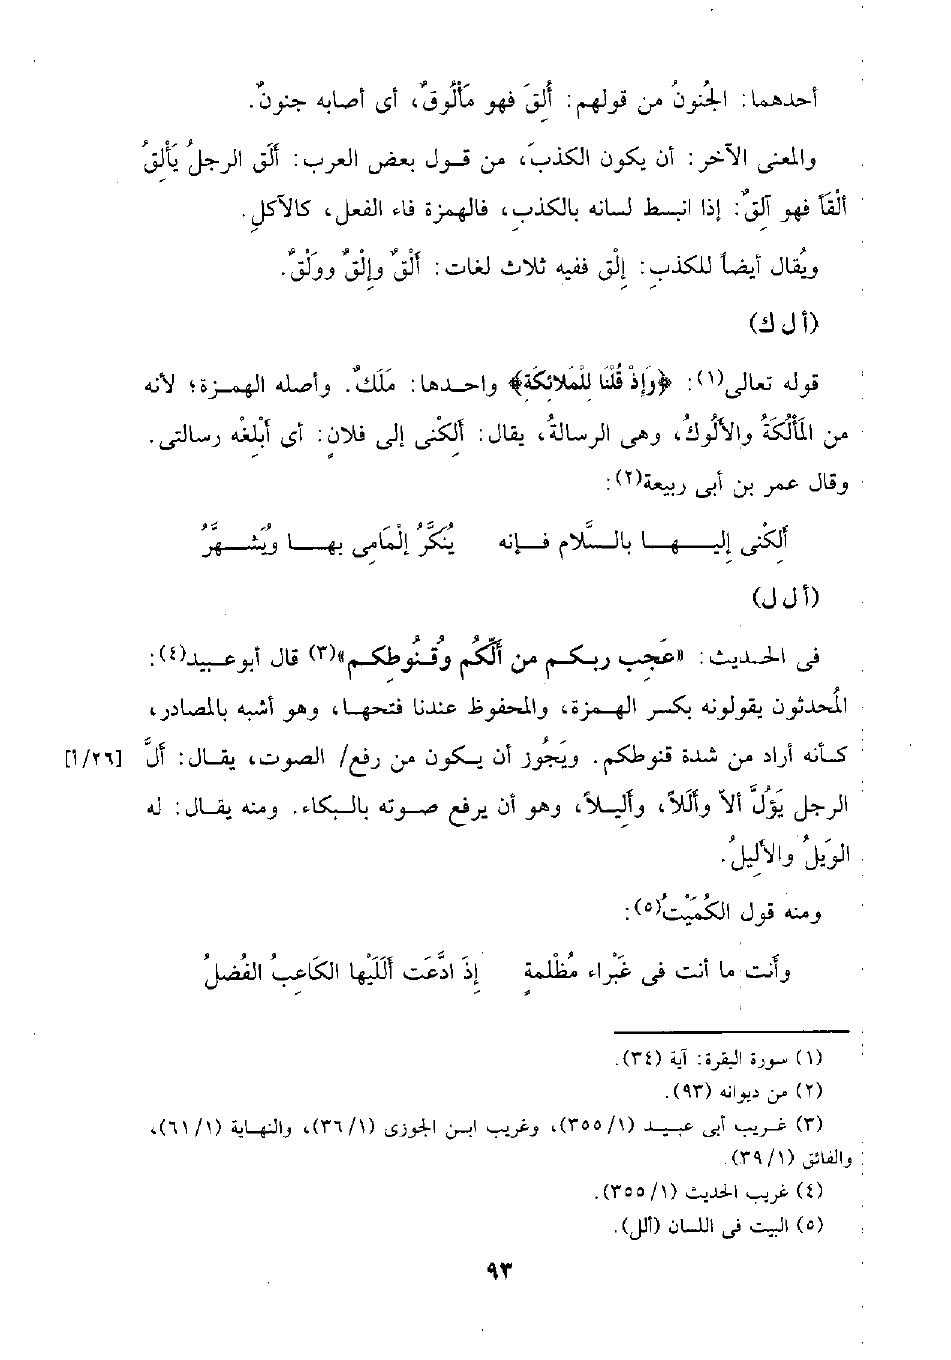 أحدهما: الجُنونُ من قولهم: أُلِقَ فهو مَأْلُوقٌ، أى أصابه جنونٌ.
والمعنى الآخر: أن يكون الكذبَ، من قول بعض العرب: أَلَق الرجلُ يَأْلِقُ
أَلْقاً فهو آلِقٌ: إذا انبسط لسانه بالكذبِ، فالهمزة فاء الفعل، كالآكلِ.
ويُقال أيضاً للكذبِ: إِلْق ففيه ثلاث لغات: أَلْقٌ وإِلْقٌ ووَلْقٌ.
(أ ل ك)
قوله تعالى(١): ﴿وَإِذْ قُلْنَا لِلْمَلائِكَةِ﴾ واحدها: مَلَكٌ. وأصله الهمزة؛ لأنه
من المَأْلُكَةُ والأَلُوكُ، وهى الرسالةُ، يقال: أَلِكْنى إلى فلانٍ: أى أَبْلِغْه رسالتى.
وقال عمر بن أبى ربيعة(٢):
أَلِكْنى إليها بالسَّلام فإنه يُنَكَّرُ إِلْمَامِى بها ويُشَهَّرُ
(أ ل ل)
فى الحديث: «عَجِب ربكم من أَلِّكُم وقُنُوطِكم»(٣) قال أبو عبيد(٤):
المُحدثون يقولونه بكسر الهمزة، والمحفوظ عندنا فتحها، وهو أشبه بالمصادر،
كأنه أراد من شدة قنوطكم. ويَجُوز أن يكون من رفع/ الصوت، يقال: أَلَّ [٢٦/أ]
الرجل يَؤُلُّ ألاّ وأَلَلاً، وأَلِيلاً، وهو أن يرفع صوته بالبكاء. ومنه يقال: له
الوَيلُ والأَلِيلُ.
ومنه قول الكُمَيْتُ(٥):
وأَنت ما أنت فى غَبْراء مُظْلمةٍ إِذَ ادَّعَت أَلَلَيْها الكَاعِبُ الفُضلُ
(١) سورة البقرة: آية (٣٤).
(٢) من ديوانه (٩٣).
(٣) غريب أبى عبيد (٣٥٥/١)، وغريب ابن الجوزى (٣٦/١)، والنهاية (٦١/١)،
والفائق (٣٩/١).
(٤) غريب الحديث (٣٥٥/١).
(٥) البيت فى اللسان (ألل).
٩٣